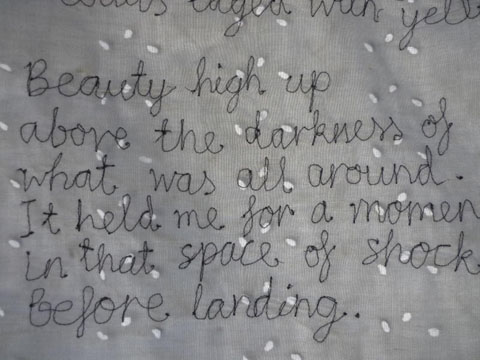 edged with yell
Beauty high up
above the darkness of
what was all around.
It held me for a momen
in that space of shock
Before landing.